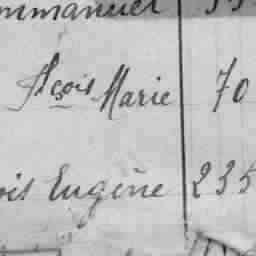 mmanuel
Fçois Marie 70
ois Eugène 235